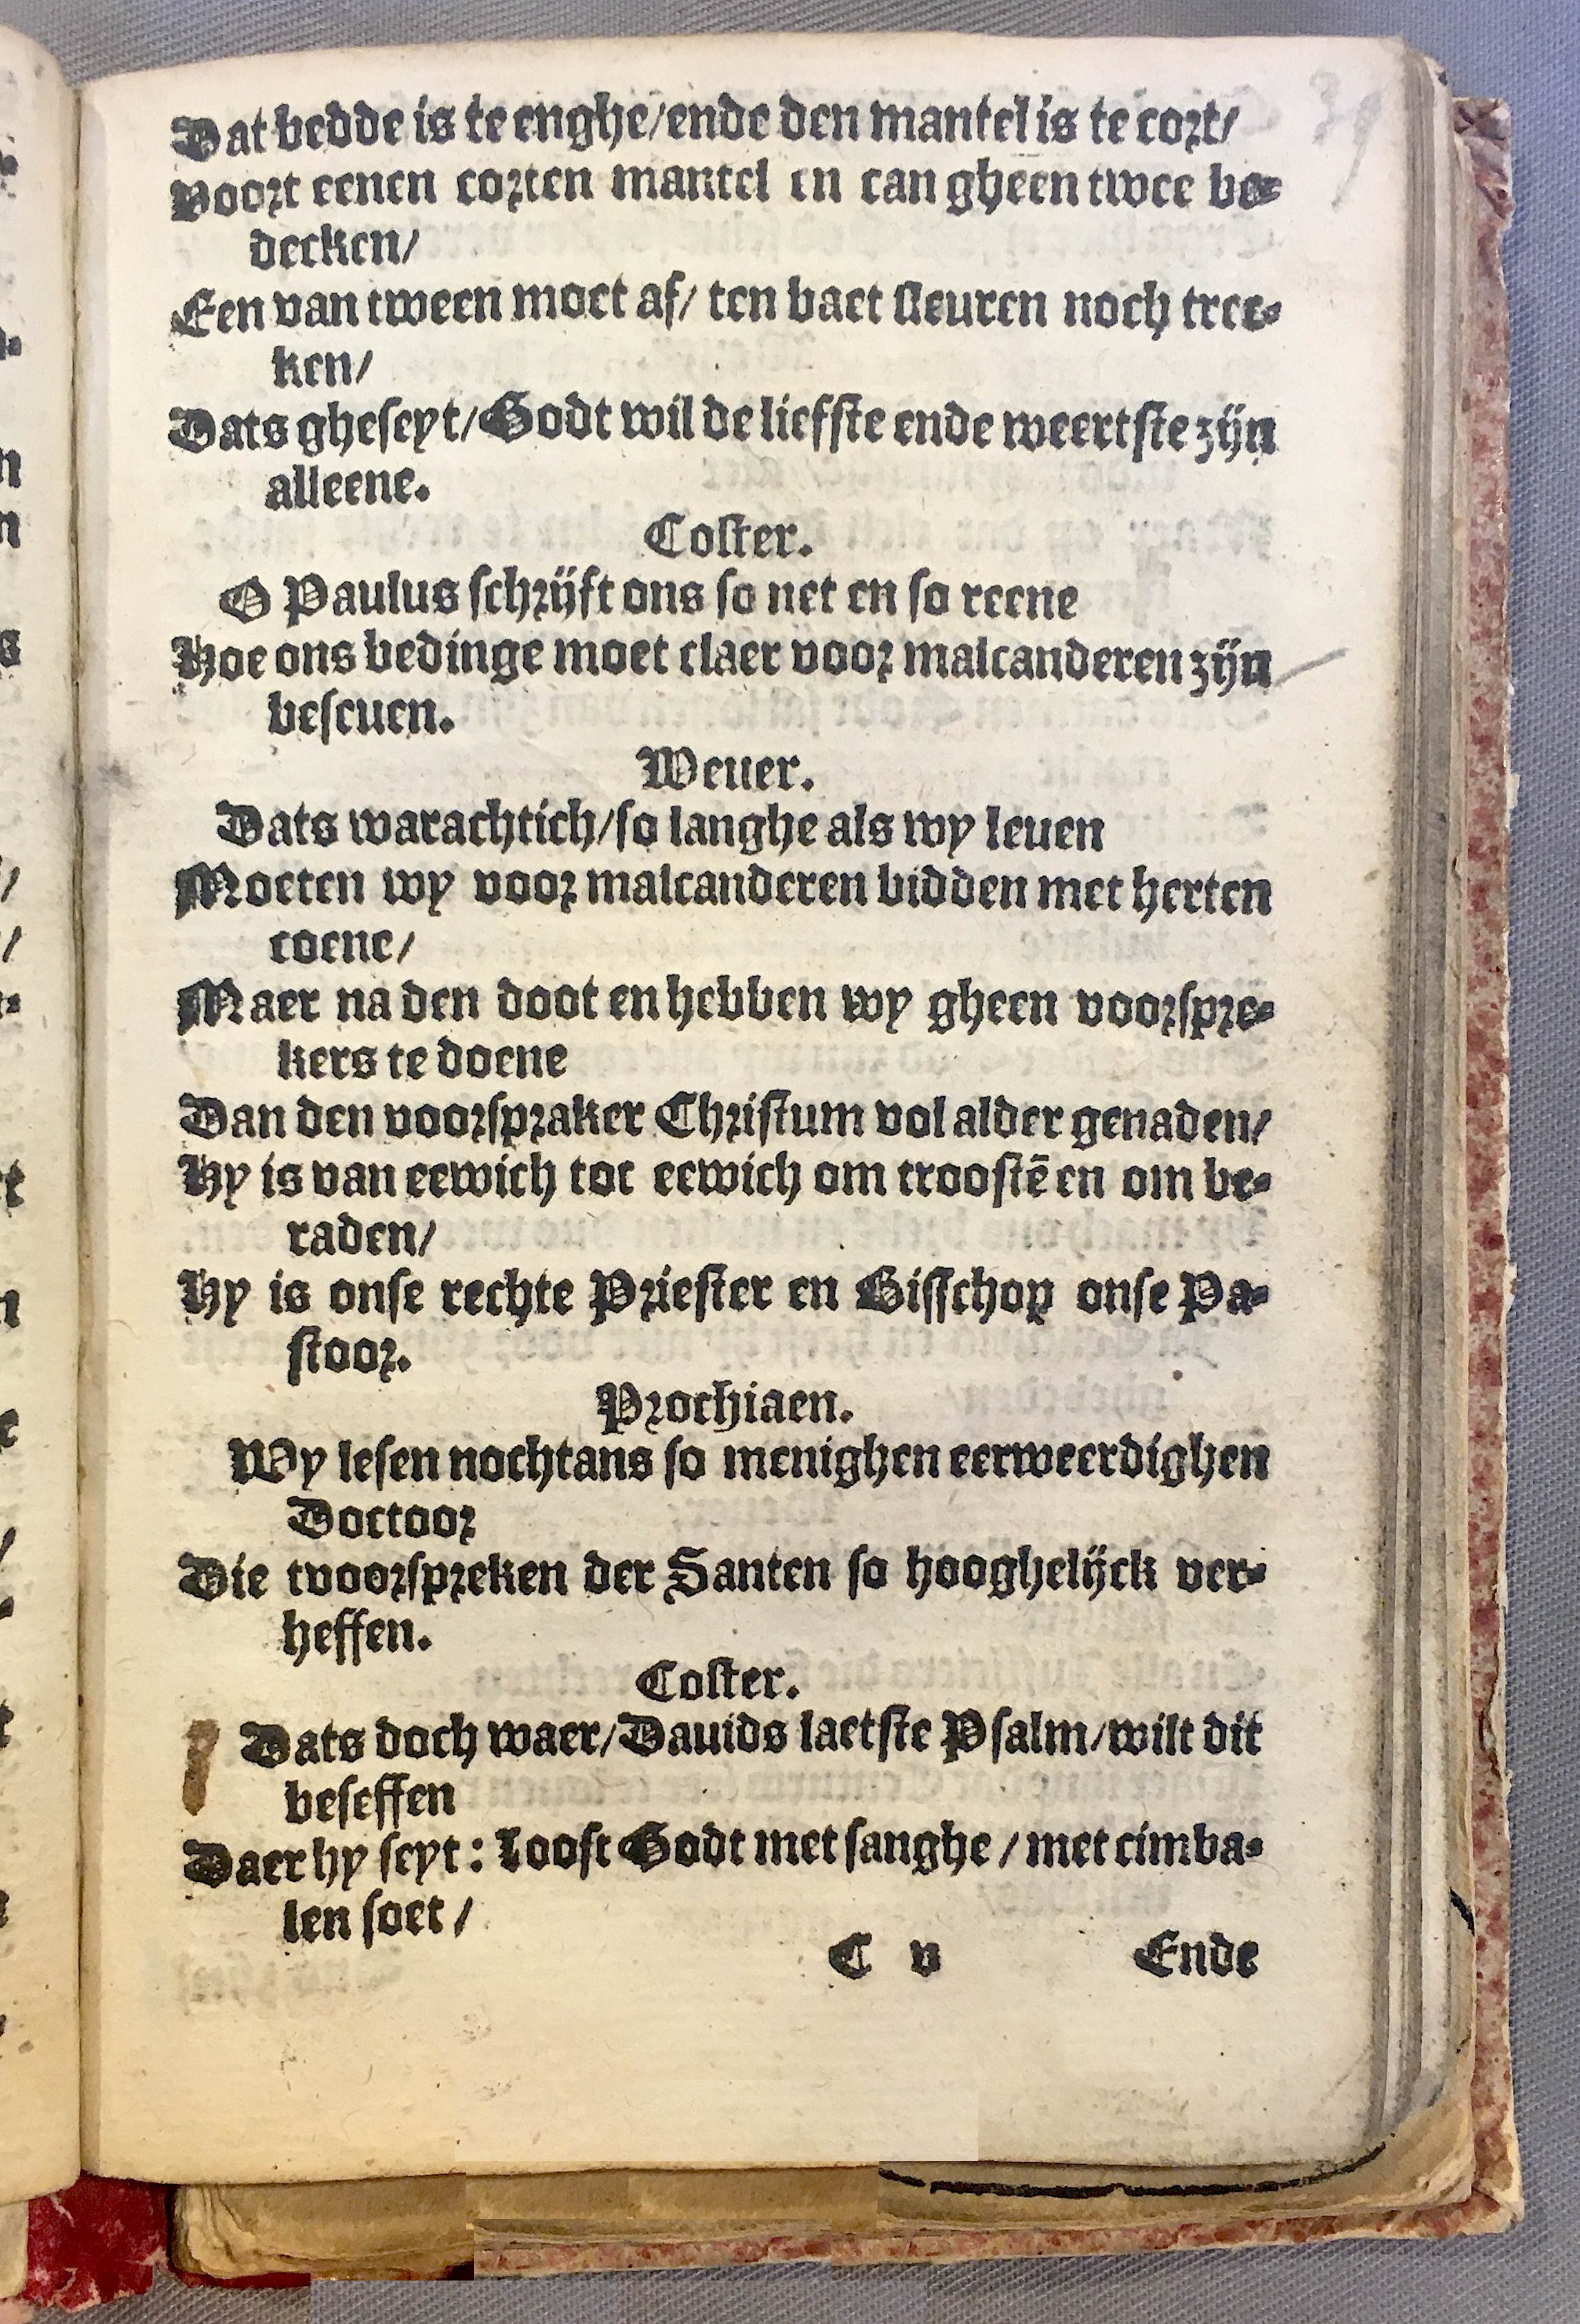 Dat bedde is te enghe/ende den mantel is te cort/
voort eenen corten mantel en can gheen twee be-
decken/
Een van tween moet af/ ten baet sleuren noch trec-
ken/
Dats gheseyt/Godt wil de liefste ende weertste zijn
alleene.
Coster.
O Paulus schrijft ons so net en so reene
Hoe ons bedinge moet claer voor malcanderen zijn
beseuen.
Weuer.
Dats warachtich/so langhe als wy leuen
Moeten wy voor malcanderen bidden met herten
coene/
Maer na den doot en hebben wy gheen voorspre-
kers te doene
Dan den voorspraker Christum vol alder genaden/
Hy is van eewich tot eewich om troostē en om be-
raden/
Hy is onse rechte Priester en Bisschop onse Pa-
stoor.
Prochiaen.
Wy lesen nochtans so menighen eerweerdighen
Doctoor
Die tvoorspreken der Santen so hooghelijck ver-
heffen.
Coster.
Dats doch waer/Dauids laetste Psalm/wilt dit
beseffen
Daer hy seyt: Looft Godt met sanghe / met cimba-
len soet /
C v Ende